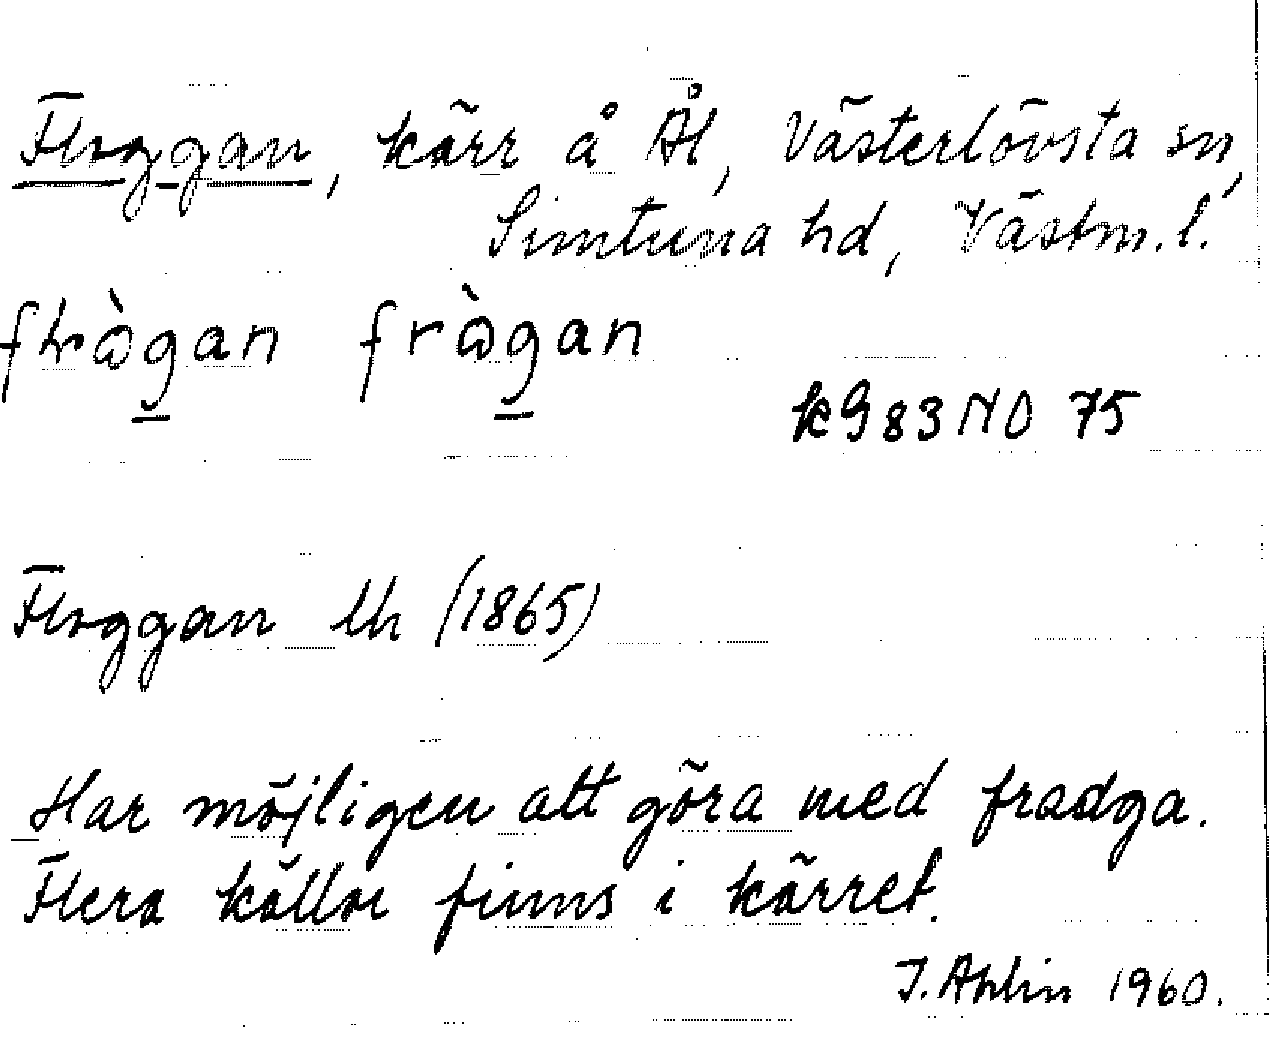 Floggan, kärr å Ål, Västerlövsta sn,
Simtuna hd, Västm. l.
frògan
kG83NO 75
Floggan lh (1865)
Har möjligen att göra med fradga.
Flera källor finns i kärret.
I. Ahlin 1960.